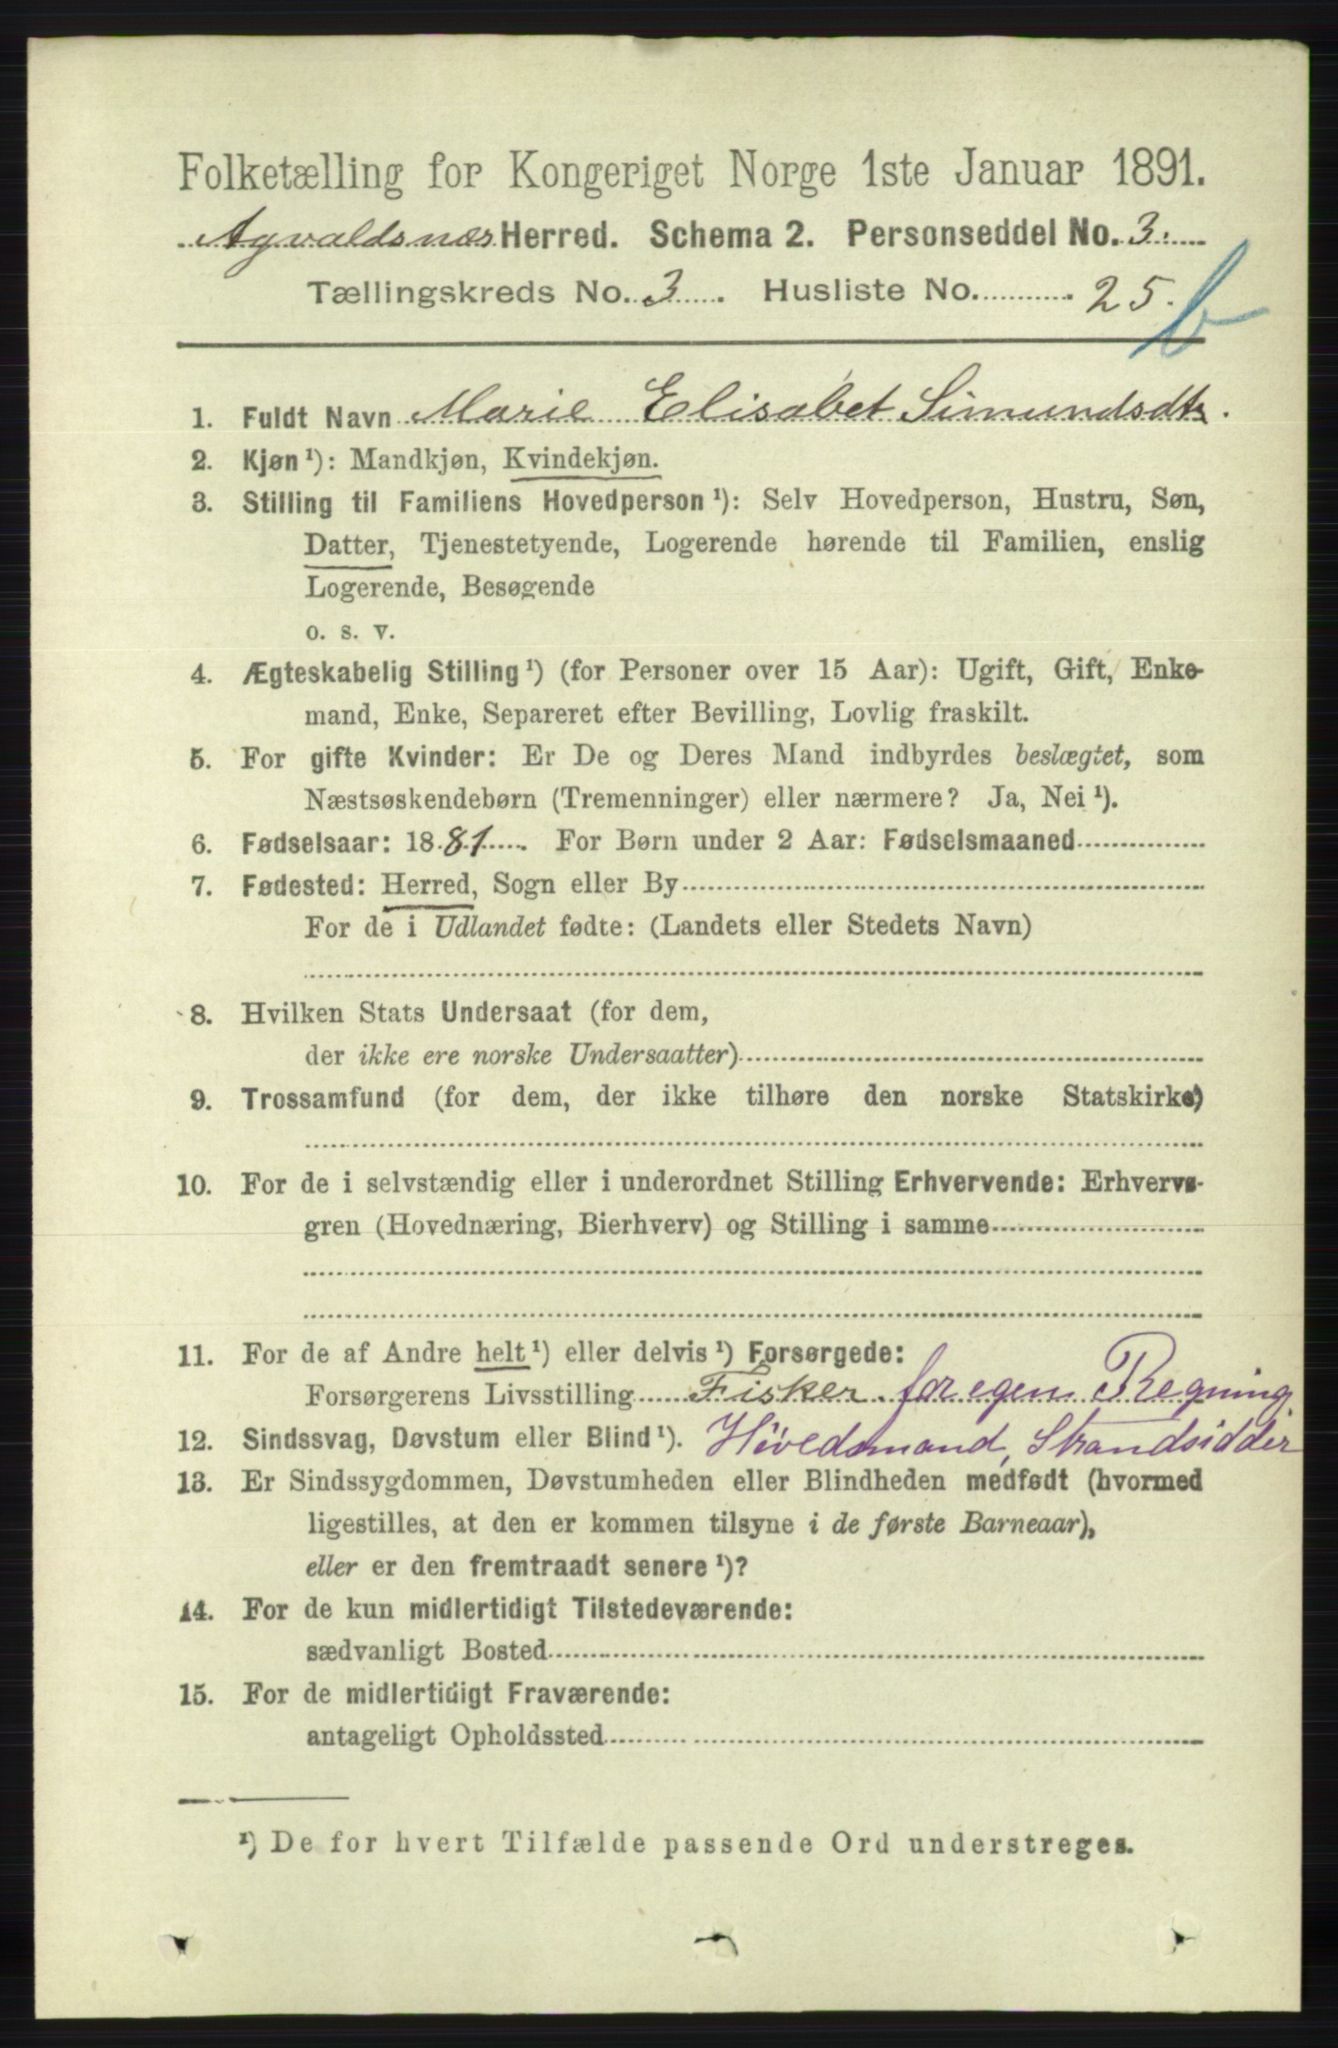 Folketælling for Kongeriget Norge 1ste Januar 1891.
Agvaldsnæs Herred. Schema 2. Personseddel No. 3.
Tællingskreds No. 3. Husliste No. 25.
b
1. Fuldt Navn Marie Elisabet Simundsdtr.
2. Kjøn ¹): Mandkjøn, Kvindekjøn.
3. Stilling til Familiens Hovedperson ¹): Selv Hovedperson, Hustru, Søn,
Datter, Tjenestetyende, Logerende hørende til Familien, enslig
Logerende, Besøgende
o. s. v.
4. Ægteskabelig Stilling ¹) (for Personer over 15 Aar): Ugift, Gift, Enke-
mand, Enke, Separeret efter Bevilling, Lovlig fraskilt.
5. For gifte Kvinder: Er De og Deres Mand indbyrdes beslægtet, som
Næstsøskendebørn (Tremenninger) eller nærmere? Ja, Nei ¹).
6. Fødselsaar: 1881. For Børn under 2 Aar: Fødselsmaaned
7. Fødested: Herred, Sogn eller By
For de i Udlandet fødte: (Landets eller Stedets Navn)
8. Hvilken Stats Undersaat (for dem,
der ikke ere norske Undersaatter)
9. Trossamfund (for dem, der ikke tilhøre den norske Statskirke)
10. For de i selvstændig eller i underordnet Stilling Erhvervende: Erhvervs-
gren (Hovednæring, Bierhverv) og Stilling i samme
11. For de af Andre helt ¹) eller delvis ¹) Forsørgede:
Forsørgerens Livsstilling Fisker for egen Regning
12. Sindssvag, Døvstum eller Blind ¹). Hövedsmand, Strandsidder
13. Er Sindssygdommen, Døvstumheden eller Blindheden medfødt (hvormed
ligestilles, at den er kommen tilsyne i de første Barneaar),
eller er den fremtraadt senere ¹)?
14. For de kun midlertidigt Tilstedeværende:
sædvanligt Bosted
15. For de midlertidigt Fraværende:
antageligt Opholdssted
¹) De for hvert Tilfælde passende Ord understreges.